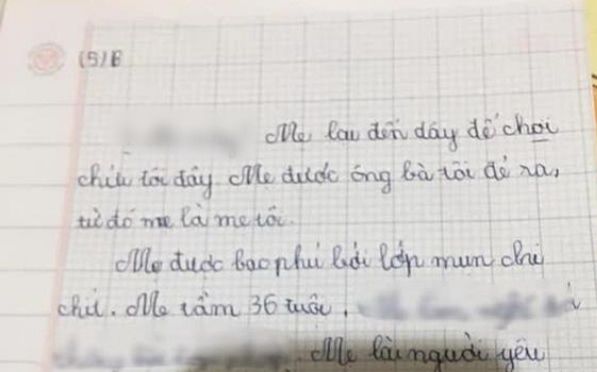 (5)B
Mẹ lau đến dáy dể chơi
chiếu tới dây Mẹ được ông bà tôi đẻ ra,
từ đó mẹ là mẹ tôi.
Mẹ được bao phủ bởi lớp mụn chi
chít. Mẹ tầm 36 tuổi.
Mẹ là người yêu